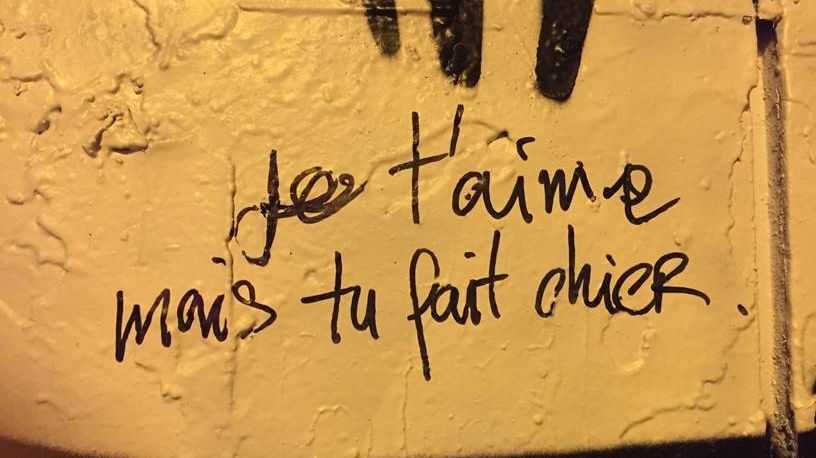 Je t'aime
mais tu fait chier.